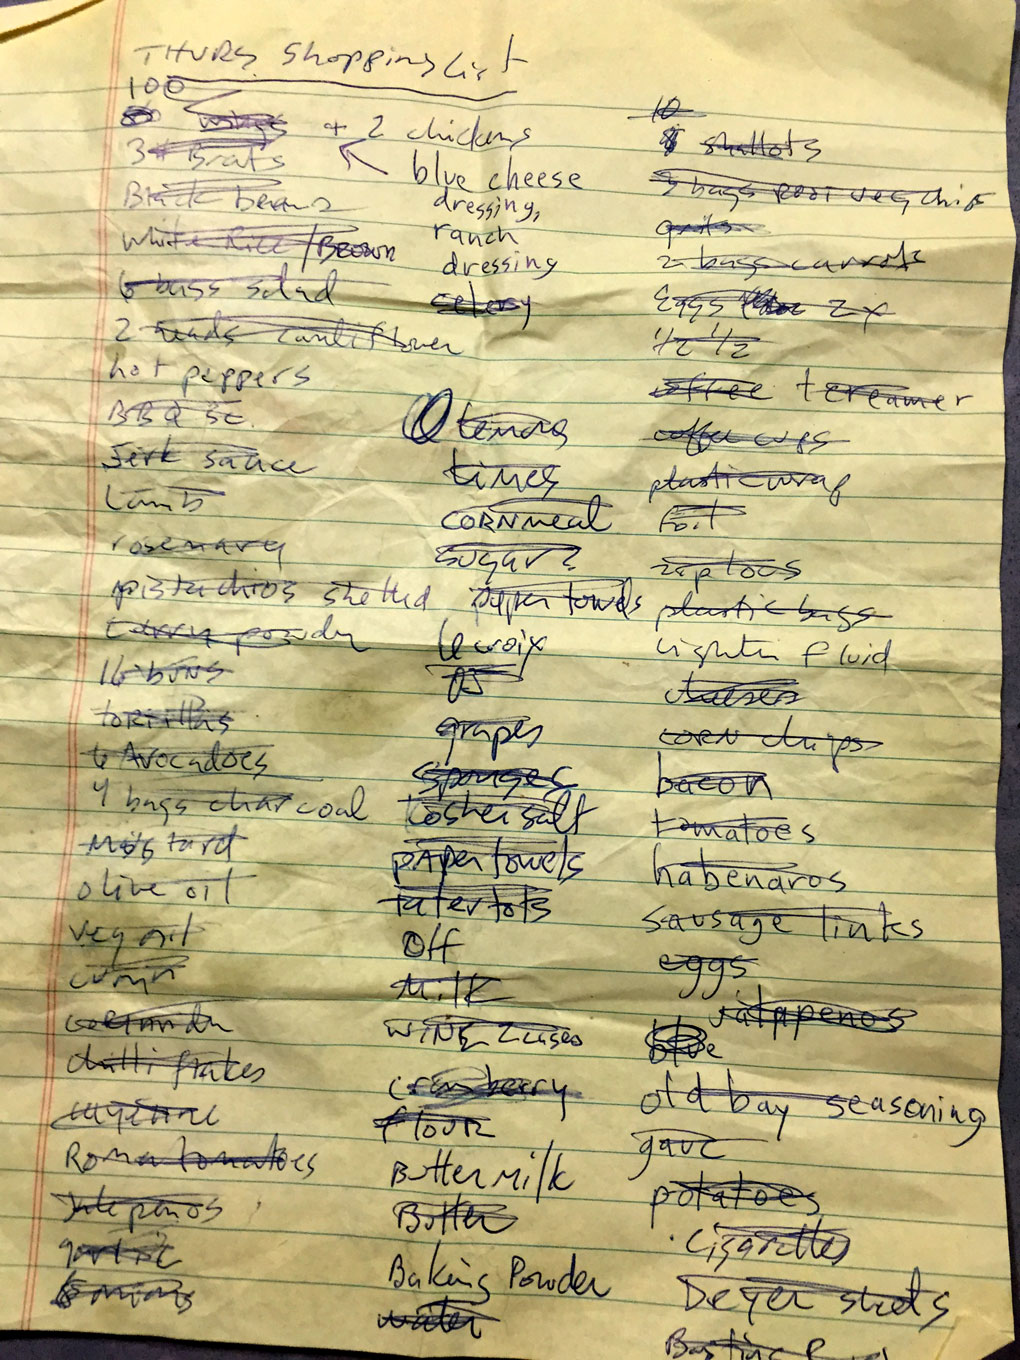 THURS Shopping List
100
wings + 2 chickens
3# Brats
Black beans
white Rice / Brown
6 bags salad
2 heads cauliflower
hot peppers
BBQ sc.
Jerk sauce
Lamb
rosemary
pistachios shelled
curry powder
16 buns
tortillas
6 Avocadoes
4 bags charcoal
Mustard
olive oil
veg oil
cumin
chilli flakes
Roma tomatoes
jalepenos
garlic
onions
blue cheese
dressing,
ranch
dressing
celery
lemons
limes
CORNmeal
sugar?
paper towels
lacroix
OJ
grapes
sponges
kosher salt
pAper towels
tater tots
Off
Milk
WINE 2 cases
cranberry
flour
ButterMilk
Butter
Baking Powder
water
10
shallots
bags veg chips
grits
2 bags carrots
Eggs 2x
1/2 1/2
coffee + creamer
coffee cups
plastic wrap
Foil
ziplocs
plastic bags
Lighter fluid
cheeses
CORN chips
bacon
tomatoes
habenaros
sausage links
eggs
Jalapenos
blue
old bay seasoning
potatoes
cigarettes
Dryer sheets